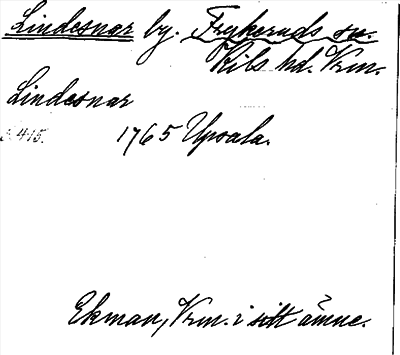 Lindesnar by. Frykeruds sn.
Kils hd. Vrm.
Lindesnar
s. 415. 1765 Upsala.
Ekman, Vrm. i sitt ämne.